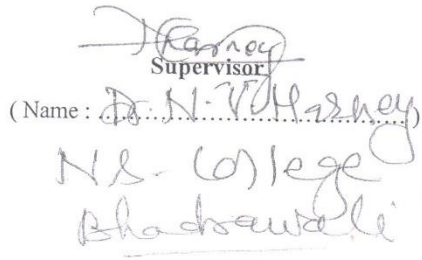 Supervisor
( Name : Dr. N. V. Harney )
N.S. College
Bhadrawati